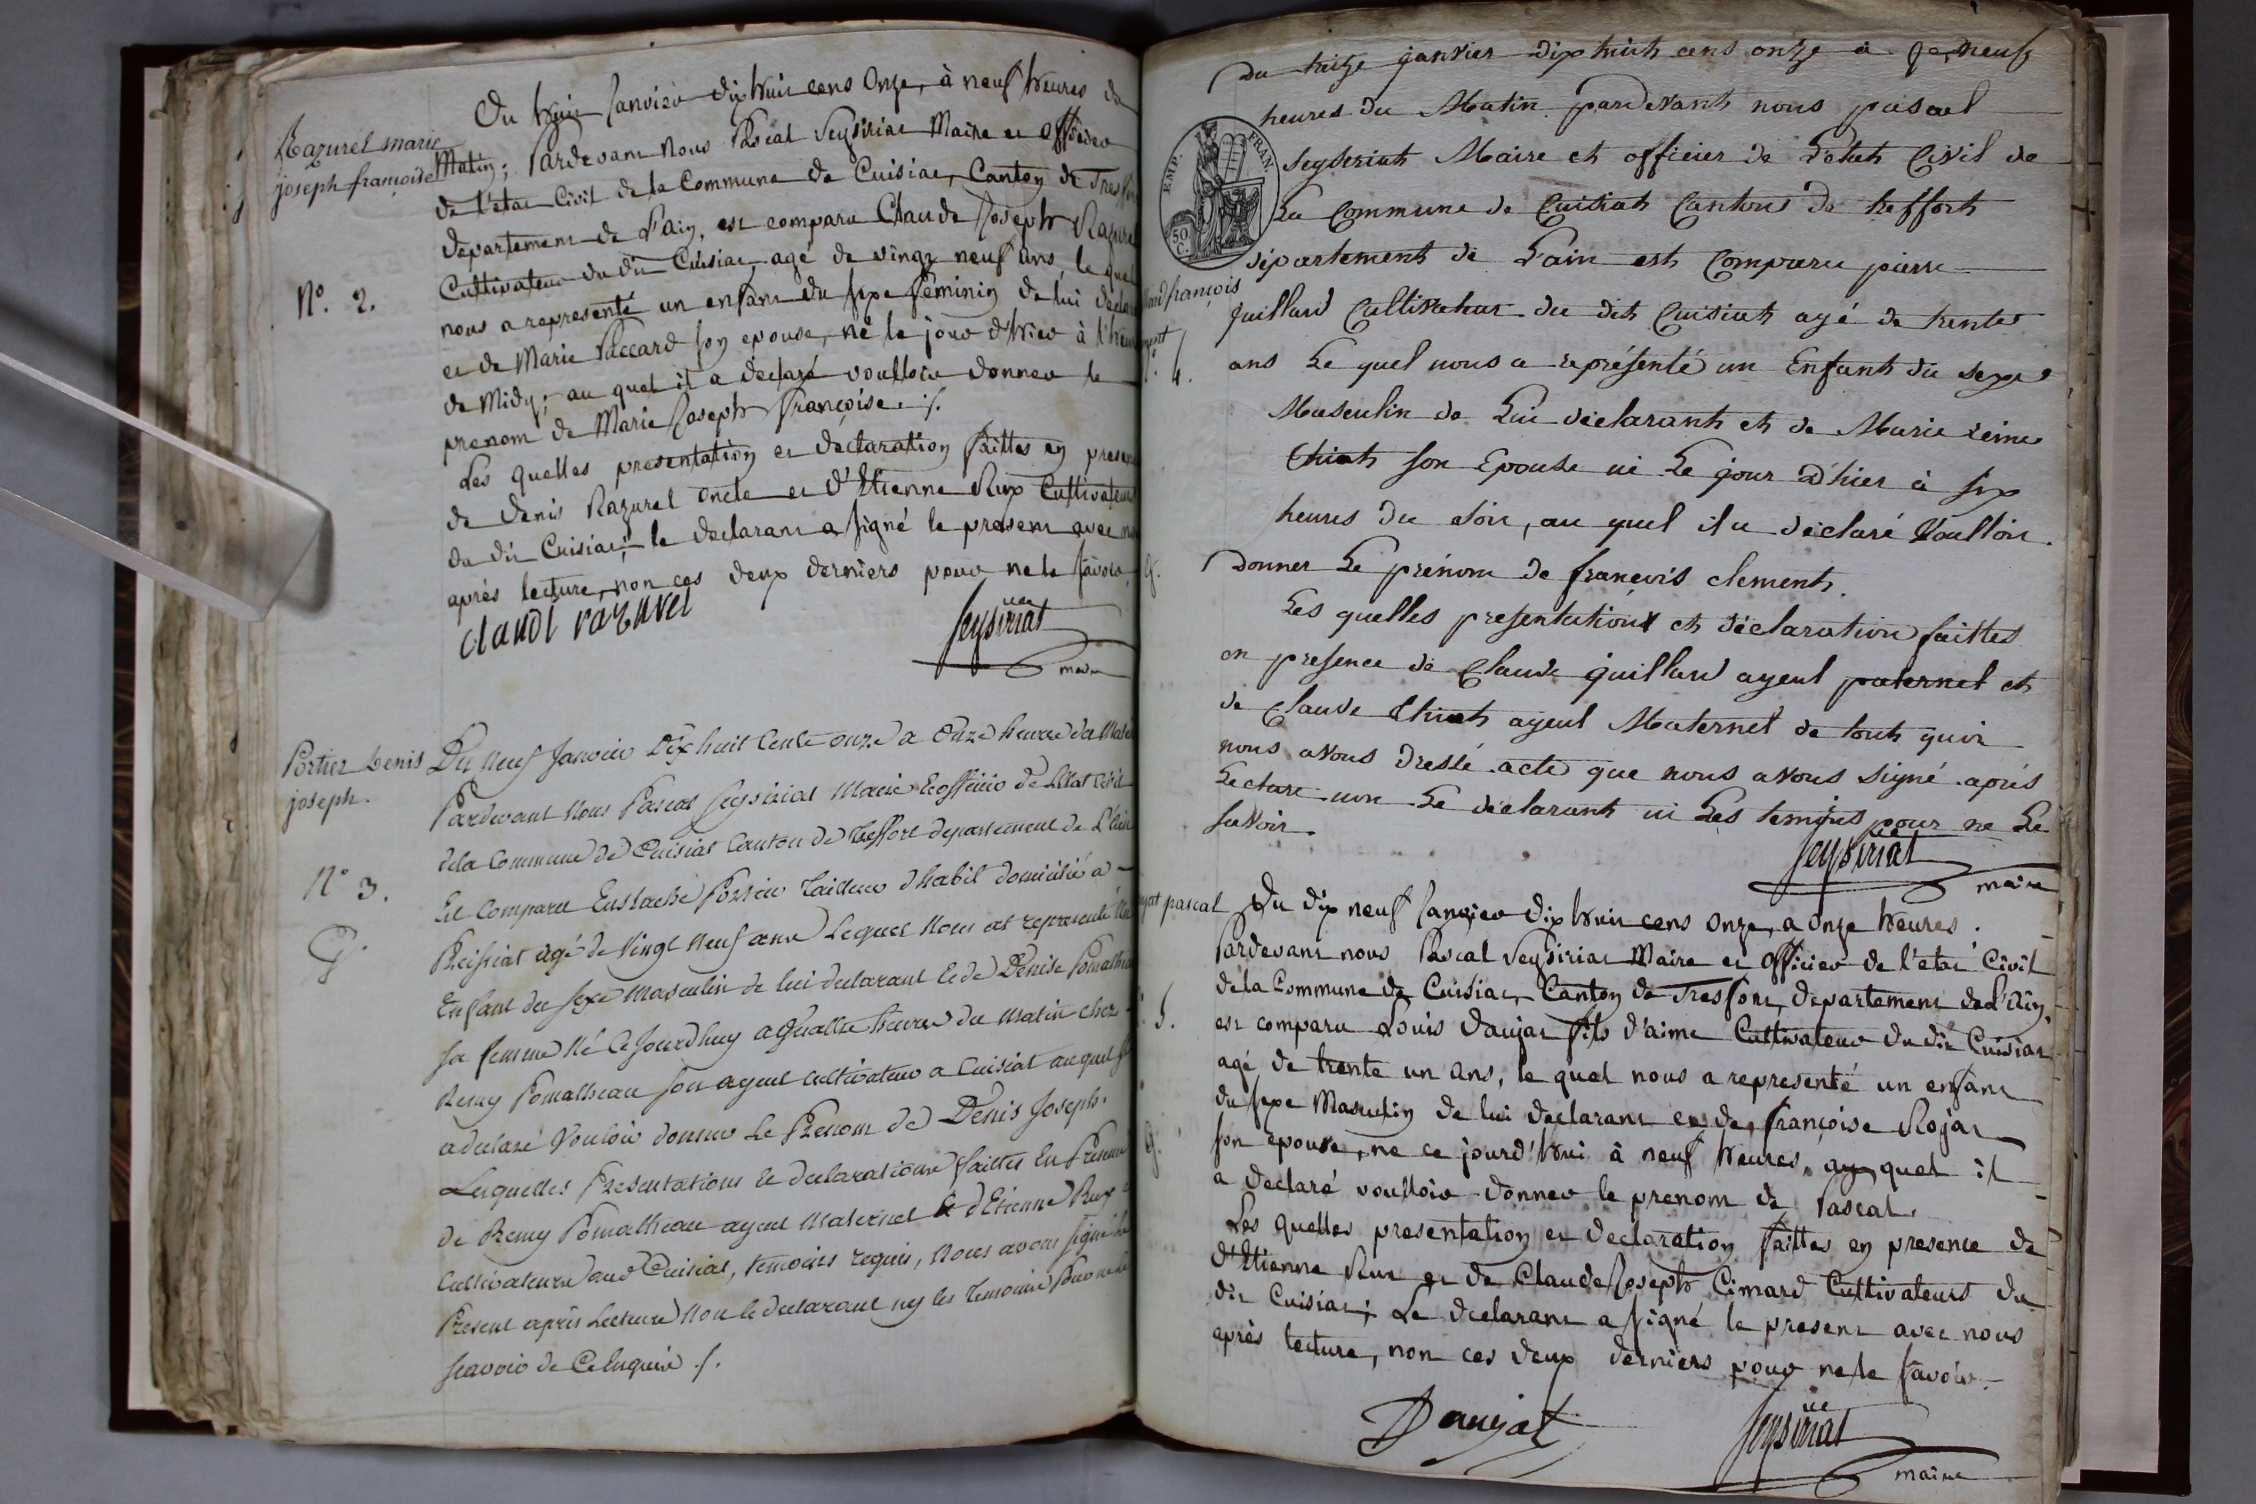 Razurel marie
joseph françoise
N°. 2.
Du huit Janvier dixhuit cens Onze, à neuf heures du
Matin; Pardevant Nous Pascal Seysiriat Maire et officier
de l'etat Civil de la Commune de Cuisiat, Canton de
departement de l'ain, est comparu Claude Joseph Razurel
Cultivateur du dit Cuisiat agé de vingt neuf ans, le quel
nous a representé un enfant du sexe féminin de lui
et de Marie Paccard son epouse, né le jour d'hier à l'heure
de Midy; au quel il a declaré voulloir donner le
prenom de Marie Joseph françoise ./.
Les quelles presentation et declaration faittes en
de Denis Razurel oncle et d'Etienne Rux Cultivateurs
du dit Cuisiat; le declarant a signé le present avec
après lecture, non ces deux derniers pour ne le savoir
claude razurel
Seysiriat
maire
Portier Denis
joseph.
N° 3.
Du Neuf Janvier Dix huit Cents onze a Onze heures du
Pardevant Nous Pascal Seysiriat Maire et officier de L'Etat civil
de la Commune de Cuisiat Canton de Treffort departement de L'ain
Est Comparu Eustache Portier Tailleur d'habit domicilié a
agé de Vingt Neuf ans Lequel Nous at representé
Enfant du sexe Masculin de lui declarant et de Denise
sa femme Né Ce Jourdhuy a Quattre heures du Matin chez
Remy Pomatheau son ayeul cultivateur a Cuisiat auquel
a declaré Vouloir donner Le Prenom de Denis Joseph.
Lesquelles Presentations et declarations faittes En
de Remy Pomatheau ayeul Maternel et d'Etienne Rux
Cultivateurs aud Cuisiat, temoins requis, Nous avons signé
Present après Lecture Non le declarant ny les Temoins Pour
scavoir de Ce Enquis ./.
Du treize janvier dix huit cens onze à neuf
heures du Matin pardevant nous pascal
Seyseriat Maire et officier de l'état Civil de
La Commune de Cuisiat Canton de treffort
département de L'ain est Comparu pierre
EMP. FRAN.
50
C.
françois
4.
guillard Cultivateur du dit Cuisiat agé de trente
ans Le quel nous a représenté un Enfant du sexe
Masculin de Lui déclarant et de Marie reine
son Epouse né Le jour d'hier à six
heures du soir, au quel il a déclaré Voulloir
donner Le prénom de françois clement.
Les quelles presentations et déclaration faittes
en presence de Claude guillard ayeul paternel et
de Claude ayeul Maternel de tout quoi
nous avons dressé acte que nous avons signé après
Lecture non Le déclarant ni Les temoins pour ne Le
savoir.
Seysiriat
maire
pascal
5.
Du dix neuf Janvier dix huit cens onze, a onze heures.
Pardevant nous Pascal Seysiriat Maire et officier de l'etat Civil
de la Commune de Cuisiat, Canton de Tresfort, departement de L'Ain,
est comparu Louis Daujat fils d'aimé Cultivateur du dit Cuisiat
agé de trente un ans, le quel nous a representé un enfant
du sexe Masculin de lui declarant et de françoise Rojat
son epouse, ne ce jourd'hui à neuf heures, au quel il
a declaré voulloir donner le prenom de Pascal.
Les quelles presentation et declaration faittes en presence de
d'Etienne Rux et de Claude Joseph Cimard Cultivateurs du
dit Cuisiat; Le declarant a signé le present avec nous
après lecture, non ces deux derniers pour ne le savoir.
Daujat
Seysiriat
maire